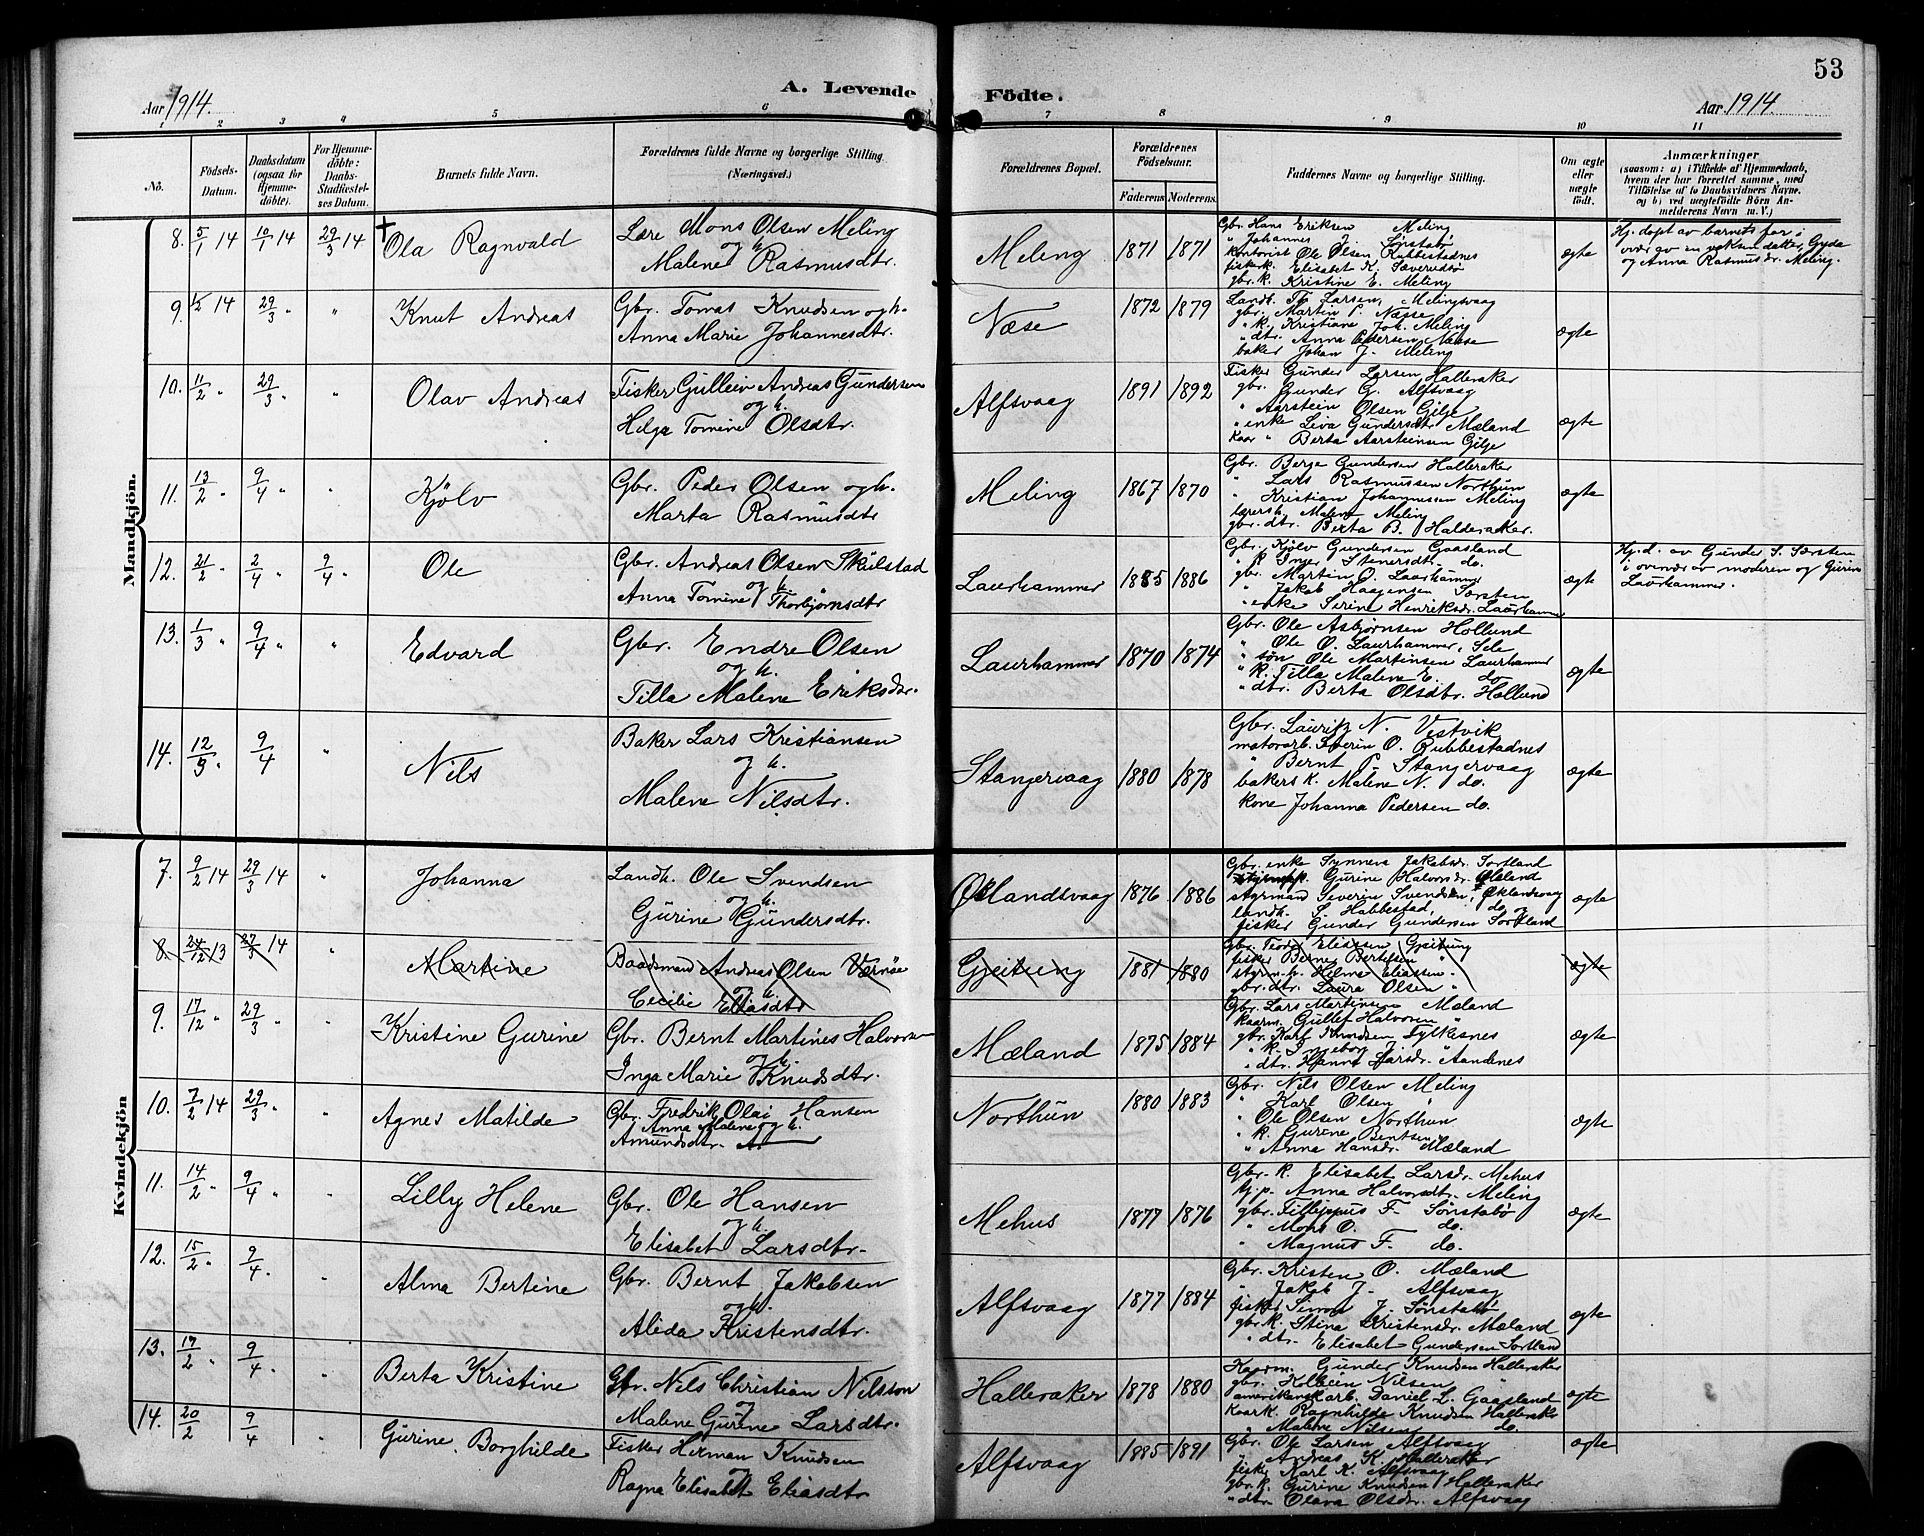 53
Aar 1914.
A. Levende Födte.
Aar 1914.
1 2 3 4 5 6 7 8 9 10 11
No.
Födsels-Datum.
Daabsdatum (ogsaa for Hjemme-döbte).
For Hjemme-döbte: Daabs-Stadfæstel-ses Datum.
Barnets fulde Navn.
Forældrenes fulde Navne og borgerlige Stilling (Næringsvei.)
Forældrenes Bopæl.
Forældrenes Födselsaar.
Faderens
Moderens
Faddernes Navne og borgerlige Stilling.
Om ægte eller uægte födt.
Anmærkninger
(saasom: a) i Tilfælde af Hjemmedaab, hvem der har forrettet samme, med Tilföielse af to Daabsvidners Navne, og b) ved uægtefödte Börn An-melderens Navn m. V.)
Mandkjön.
8. 5/1 14 10/1 14 29/3 14 † Ola Ragnvald
Lære Mons Olsen Meling
og h.
Malene Rasmusdtr.
Meling 1871 1871
Gbr. Hans Eriksen Meling
" Johannes J. Sønstabø
Kontorist Ole Olsen Rubbestadnes
fiskerk. Elisabet K. Sæverudsø
gbr. k. Kristine E. Meling
ægte
Hj. døpt av barnets far i
overv. av en voksen datter, Gyda
og Anna Rasmusdr. Meling.
9. 1/2 14 29/3 " " Knut Andreas
Gbr. Tomas Knudsen og h.
Anna Marie Johannesdtr.
Næse 1872 1879
Landh. Th. Larsen, Melingsvaag
gbr. Martin P. Næsse
" k. Kristiane Joh. Meling
" dtr. Anna Pedersen Næse
baker Johan J. Meling
ægte
10. 11/2 " 29/3 " " Olav Andreas
Fisker Gullein Andreas Gundersen
og h.
Helga Tomine Olsdtr.
Alfsvaag 1891 1892
Fisker Gunder Larsen Halleraker
gbr. Gunder G. Alfsvaag
" Aarstein Olsen Gilje
" enke Liva Gundersdtr Mæland
Kaar " Berta Aarsteinsen Gilje
ægte
11. 13/2 " 9/4 " " Kjölv
Gbr. Peder Olsen og h.
Marta Rasmusdtr
Meling 1867 1870
Gbr. Berge Gundersen Halleraker
" Lars Rasmussen Northun
" Kristian Johannessen Meling
lærersk. Malene Meling
gbr. dtr. Berta B. Halderaker.
ægte
12. 21/2 " 2/4 " 9/4 " Ole
Gbr. Andreas Olsen Skulstad
og h.
Anna Tomine Thorbjørnsdtr
Laurhammer 1885 1886
Gbr. Kjölv Gundersen Gaasland
" k. Inger Stenersdtr. do.
gbr. Martin O. Laurhammer
" Jakob Haagensen Sørsten
" enke Serine Henriksdr. Laurhammer
ægte
Hj.d. av Gunder S. Sørsten
i overvær av moderen og Gurine
Laurhammer.
13. 1/3 " 9/4 " " Edvard
Gbr. Endre Olsen
og h.
Tilla Malene Eriksdr.
Laurhammer 1870 1874
Gbr. Ole Asbjørnsen Hollund
" Ole O. Laurhammer, Sele
" søn Ole Martinsen Laurhammer
" k. Tilla Malene E. do
" dtr. Berta Olsdtr. Hollund
ægte
14. 12/3 9/4 " Nils
Baker Lars Kristiansen
og h.
Malene Nilsdtr.
Stangervaag 1880 1878
Gbr. Lauritz N. Vestvik
motorarb. Severin O. Rubbestadnes
" Bernt P. Stangervaag
bakers k. Malene N. do.
kone Johanna Pedersen do.
ægte
Kvindekjön
7. 9/2 14 29/3 14 " Johanna
Landh. Ole Svendsen
og h.
Gurine Gundersdtr.
Øklandsvaag 1876 1886
Gbr. enke Synnøva Jakobsdr. Sortland
Gurine Halvorsdr. Økland
styrmand Severin Svendsen, Øklandsvaag
landh. S. Habbestad, do
fisker Gunder Gundersen Sortland
ægte
8. 24/12 13 27/3 14 " Martine
Baadsmand Andreas Olsen Værøse
og h.
Cecilie Eliasdtr
Gjeitung 1881 1880
Gbr. Teodor Eliesen Gjeitung
fisker Berner Bertelsen "
styrm. h. Helma Eliassen "
gbr. dtr. Laura Olsen "
ægte
9. 17/12 " 29/3 " " Kristine Gurine
Gbr. Bernt Martines Halvorsen
og h.
Inga Marie Knudsdtr.
Mæland 1875 1884
Gbr. Lars Martinsen Mæland
kaarm. Gullef Halvorsen "
gbr. Karl Knudsen Fylkesnes
" k. Ingeborg J. "
" dtr. Hanna Larsdr. Aandenes
ægte
10. 7/2 14 29/3 " " Agnes Matilde
Gbr. Fredrik Olai Hansen
Anna Malene og h.
Amundsdtr.
Northun 1880 1883
Gbr. Nils Olsen Meling
" Karl Olsen "
" Ole Olsen Northun
" k. Gurine Bentsen "
" Anna Hansdr. Mæland
ægte
11. 14/2 " 9/4 " " Lilly Helene
Gbr. Ole Hansen
og h.
Elisabet Larsdtr.
Mehus 1877 1876
Gbr. k. Elisabet Larsdr. Mehus
hj.p. Anna Halvorsdtr. Meling
gbr. Fillippus F. Sønstabø
" Mons O. do.
" Magnus F. do.
ægte
12. 15/2 " 9/4 " " Alma Bertine
Gbr. Bernt Jakobsen
og h.
Alida Kristensdtr.
Alfsvaag 1877 1884
Gbr. Kristen O. Mæland
" Jakob J. Alfsvaag
fisker Simon J. Sønstabø
gbr. k. Stina Kristensdr. Mæland
" dtr. Elisabet Gundersen Sortland
ægte
13. 17/2 " 9/4 " Berta Kristine
Gbr. Nils Christian Nilsson
og
Malene Gurine Larsdtr.
Halleraker 1878 1880
Kaarm. Gunder Knudsen Halleraker
gbr. Kolbein Nilsen "
amerikansk arb. Daniel L. Gaasland
Kaark. Ragnhilde Knudsen Halleraker
" Malene Nilsen do.
ægte
14. 20/2 9/4 " Gurine Borghilde
Fisker Herman Knudsen
og
Ragna Elisabet Eliasdtr
Alfsvaag 1885 1891
Gbr. Ole Larsen Alfsvaag
" Andreas K. Halleraker
fisker Karl K. Alfsvaag
gbr. k. Gurine Knudsen Halleraker
" dtr. Olava Olsdr. Alfsvaag
ægte